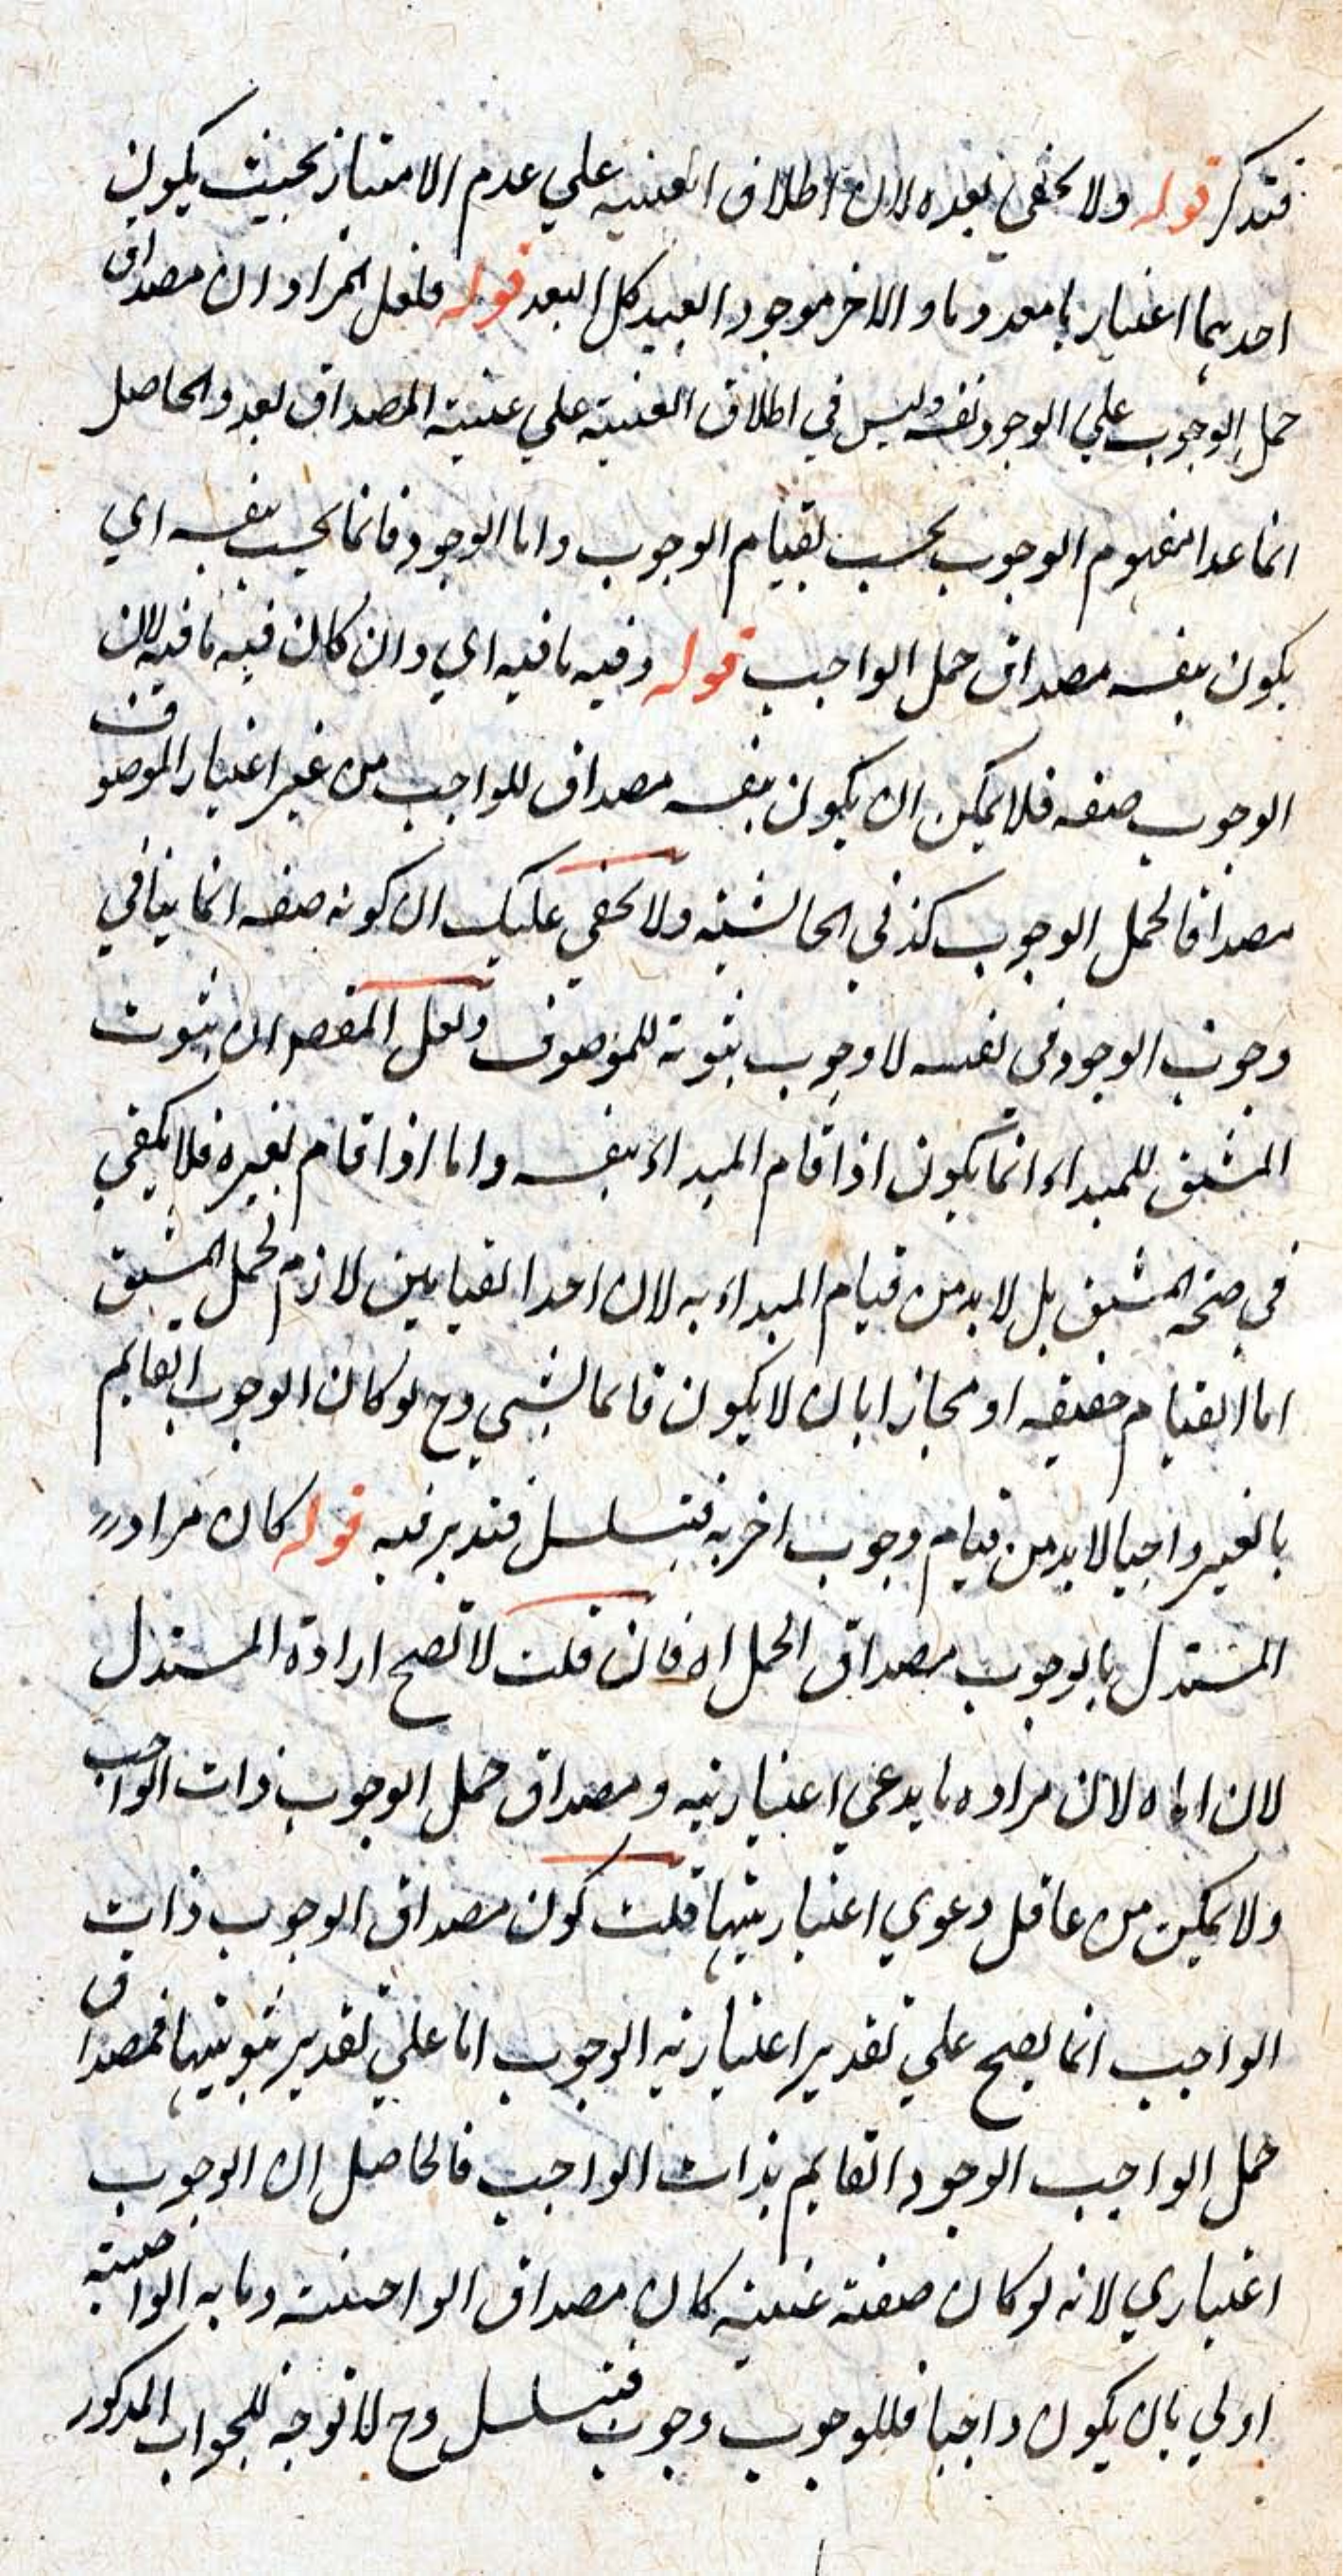 فتذكر قوله ولا يخفى بعده لان اطلاق العينيه علي عدم الامتياز بحيث يكون
احديهما اعتباريا معدوما والاخر موجودا بعيد كل البعد قوله فلعل المراد ان مصداق
حمل الوجوب علي الوجود نفسه وليس في اطلاق العينية علي عينية المصداق بعد والحاصل
انما عدا مفهوم الوجوب يجب بقيام الوجوب واما الوجود فانما يجب بنفسه اي
يكون بنفسه مصداق حمل الواجب قوله وفيه ما فيه اي وان كان فيه ما فيه لان
الوجوب صفه فلا يمكن ان يكون بنفسه مصداق للواجب من غير اعتبار الموصوف
مصداقا لحمل الوجوب كذ في الحاشية ولا يخفى عليك ان كونه صفه انما ينافي
وجوب الوجود في نفسه لا وجوب ثبوته للموصوف ولعل المقصد ان ثبوت
المشتق للمبداء انما يكون اذا قام المبداء بنفسه واما اذا قام بغيره فلا يكفي
في صحة المشتق بل لا بد من قيام المبداء به لان احد القيامين لازم لحمل المشتق
اما القيام حقيقه او مجازا بان لا يكون قائما لشي وح لو كان الوجوب القايم
بالغير واجبا لا بد من قيام وجوب اخر به فيتسلسل فتدبر فيه قوله كان مراد
المستدل بالوجوب مصداق الحمل اه فان قلت لا تصح ارادة المستدل
لان اياه لان مراده ما يدعي اعتباريته ومصداق حمل الوجوب ذات الواجب
ولا يمكن من عاقل دعوي اعتباريتها قلت كون مصداق الوجوب ذات
الواجب انما يصح علي تقدير اعتباريه الوجوب اما علي تقدير ثبوتيتها فمصداق
حمل الواجب الوجود القايم بذات الواجب فالحاصل ان الوجوب
اعتباري لانه لو كان صفته عينية كان مصداق الواجبيته وما به الواجبية
اولي بان يكون واجبا فللوجوب وجوب فيتسلسل وح لا توجه للجواب المذكور